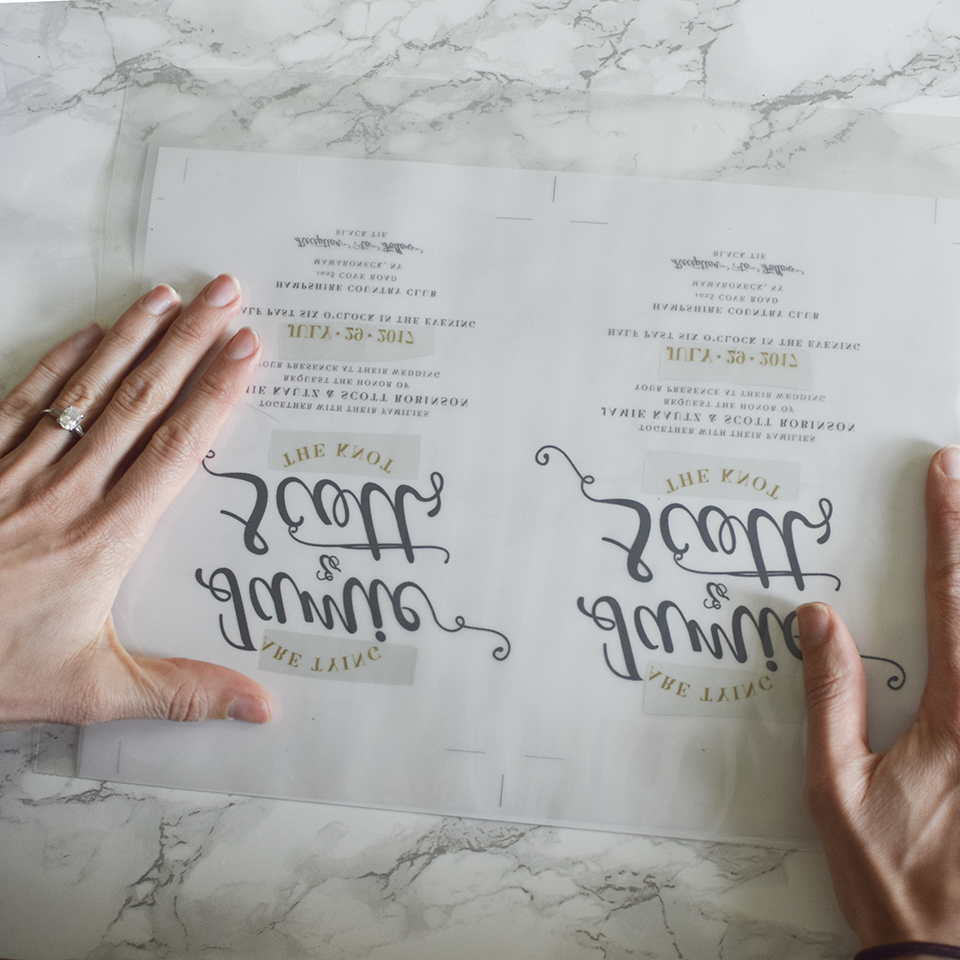 ARE TYING
Jamie
&
Scott
THE KNOT
TOGETHER WITH THEIR FAMILIES
IE KAUTZ & SCOTT ROBINSON
REQUEST THE HONOR OF
YOUR PRESENCE AT THEIR WEDDING
JULY • 29 • 2017
HALF PAST SIX O'CLOCK IN THE EVENING
HAMPSHIRE COUNTRY CLUB
1025 COVE ROAD
MAMARONECK, NY
Reception To Follow
BLACK TIE
ARE TYING
Jamie
&
Scott
THE KNOT
TOGETHER WITH THEIR FAMILIES
JAMIE KAUTZ & SCOTT ROBINSON
REQUEST THE HONOR OF
YOUR PRESENCE AT THEIR WEDDING
JULY • 29 • 2017
HALF PAST SIX O'CLOCK IN THE EVENING
HAMPSHIRE COUNTRY CLUB
1025 COVE ROAD
MAMARONECK, NY
Reception To Follow
BLACK TIE